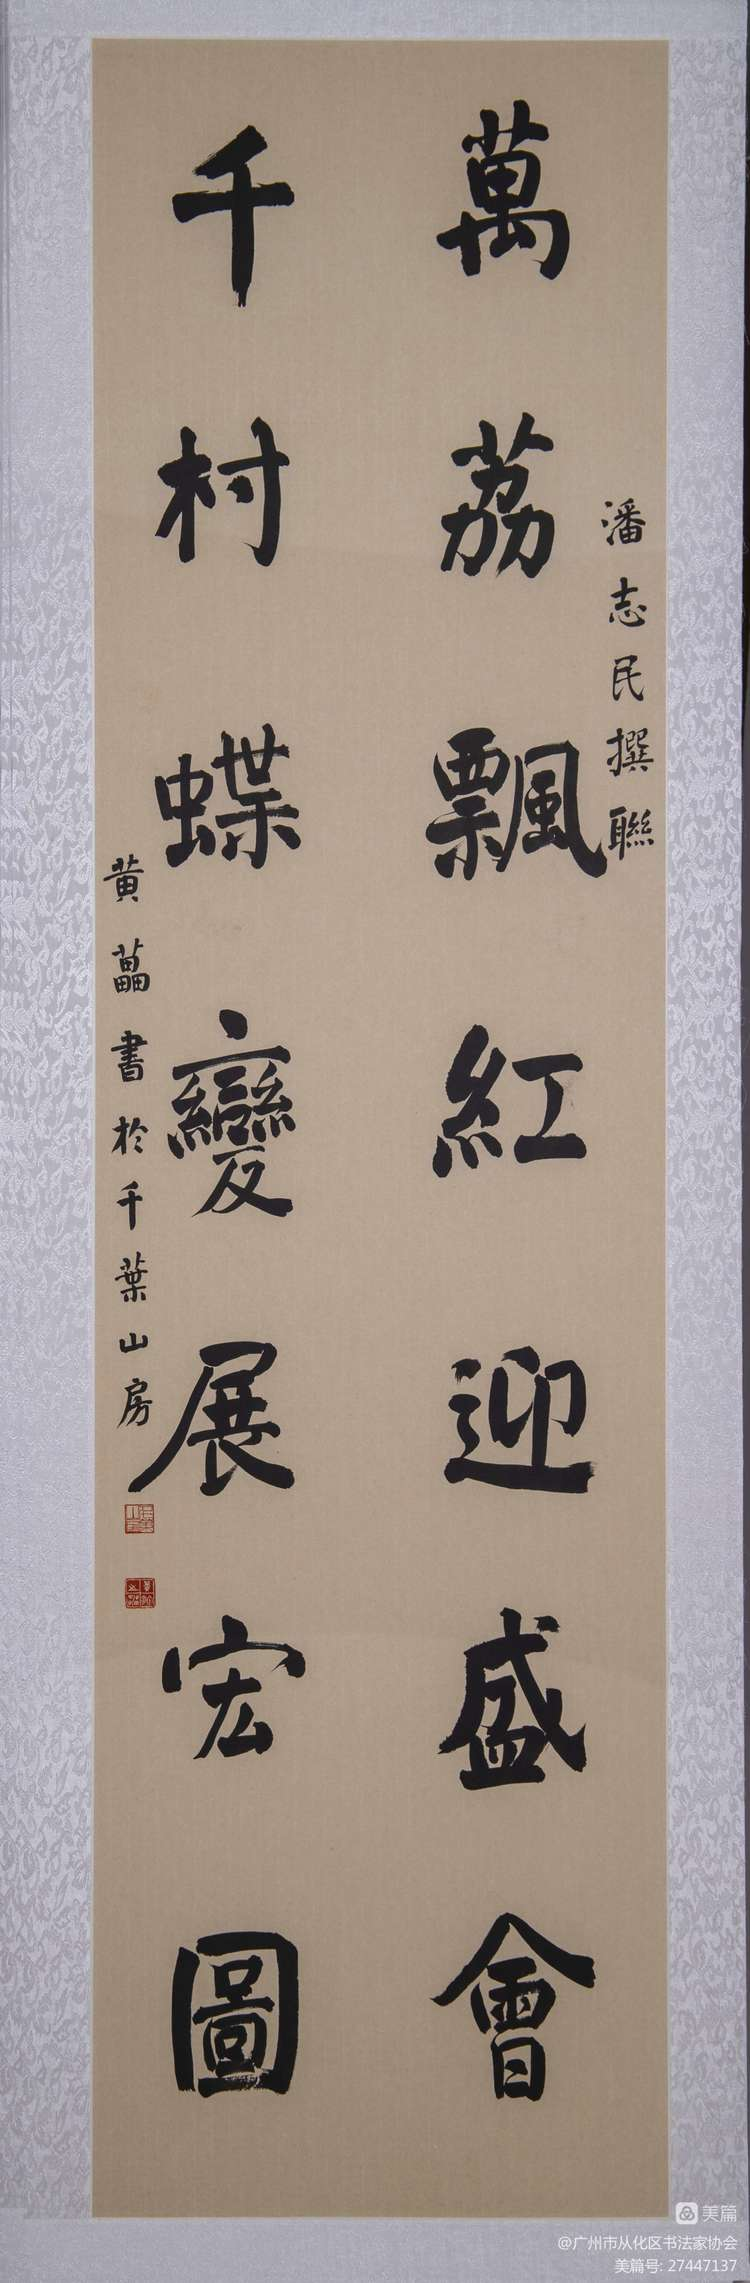 萬荔飄紅迎盛會
潘志民撰聯
千村蝶變展宏圖
黄藟書於千葉山房
美篇
@广州市从化区书法家协会
美篇号: 27447137